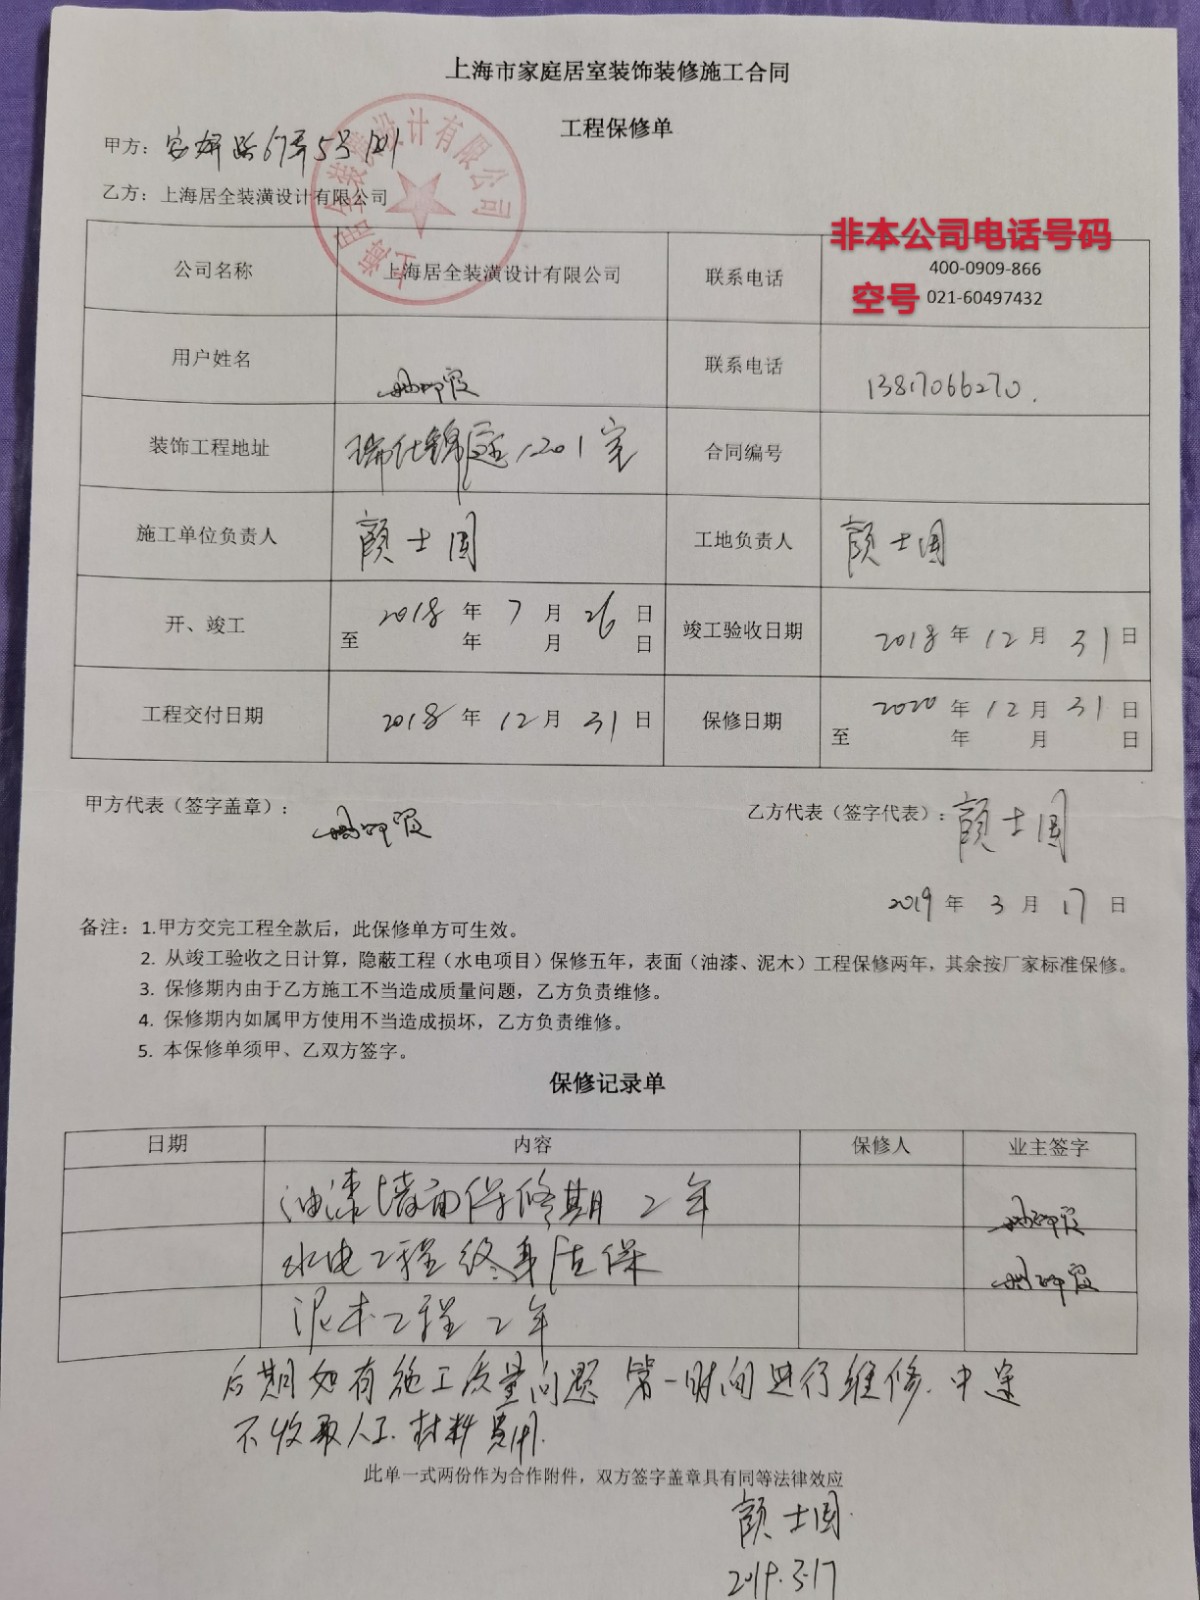 上海市家庭居室装饰装修施工合同
工程保修单
甲方：67弄5号1201
乙方：上海居全装潢设计有限公司
上海居全装潢设计有限公司
非本公司电话号码
公司名称 上海居全装潢设计有限公司 联系电话 400-0909-866
空号 021-60497432
用户姓名 联系电话 13817066270.
装饰工程地址 瑞仕锦庭1201室 合同编号
施工单位负责人 颜士国 工地负责人 颜士国
开、竣工 2018年7月26日 竣工验收日期 2018年12月31日
至 年 月 日
工程交付日期 2018年12月31日 保修日期 2020年12月31日
至 年 月 日
甲方代表（签字盖章）： 乙方代表（签字代表）：颜士国
2019年3月17日
备注：1.甲方交完工程全款后，此保修单方可生效。
2. 从竣工验收之日计算，隐蔽工程（水电项目）保修五年，表面（油漆、泥木）工程保修两年，其余按厂家标准保修。
3. 保修期内由于乙方施工不当造成质量问题，乙方负责维修。
4. 保修期内如属甲方使用不当造成损坏，乙方负责维修。
5. 本保修单须甲、乙双方签字。
保修记录单
日期 内容 保修人 业主签字
油漆墙面保修期 2年
水电工程终身质保
泥木工程 2年
后期如有施工质量问题 第一时间进行维修.中途
不收取人工.材料费用.
此单一式两份作为合作附件，双方签字盖章具有同等法律效应
颜士国
2019.3.17